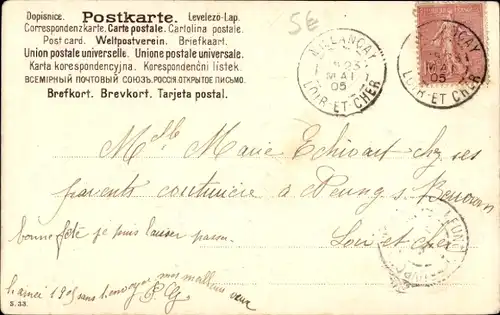 Dopisnice. Postkarte. Levelező-Lap.
Correspondenzkarte. Carte postale. Cartolina postale.
Post card. Weltpostverein. Briefkaart.
Union postale universelle. Unione postale universale.
Karta korespondencyjna. Korespondenční lístek.
ВСЕМІРНЫЙ ПОЧТОВЫЙ СОЮЗЪ. РОССІЯ. ОТКРЫТОЕ ПИСЬМО.
Brefkort. Brevkort. Tarjeta postal.
5€
LANÇAY
23
MAI
05
LOIR-ET-CHER
ÇAY
MAI
05
LOIR-ET-CHER
Mlle Marie Echivart chez ses
parents couturière à Neung s. Beuvron
Loir et cher
NEUNG
bonne fête je puis laisser passer
l'année 1905 sans t'envoyer mes meilleurs vœux
P G
S. 33.